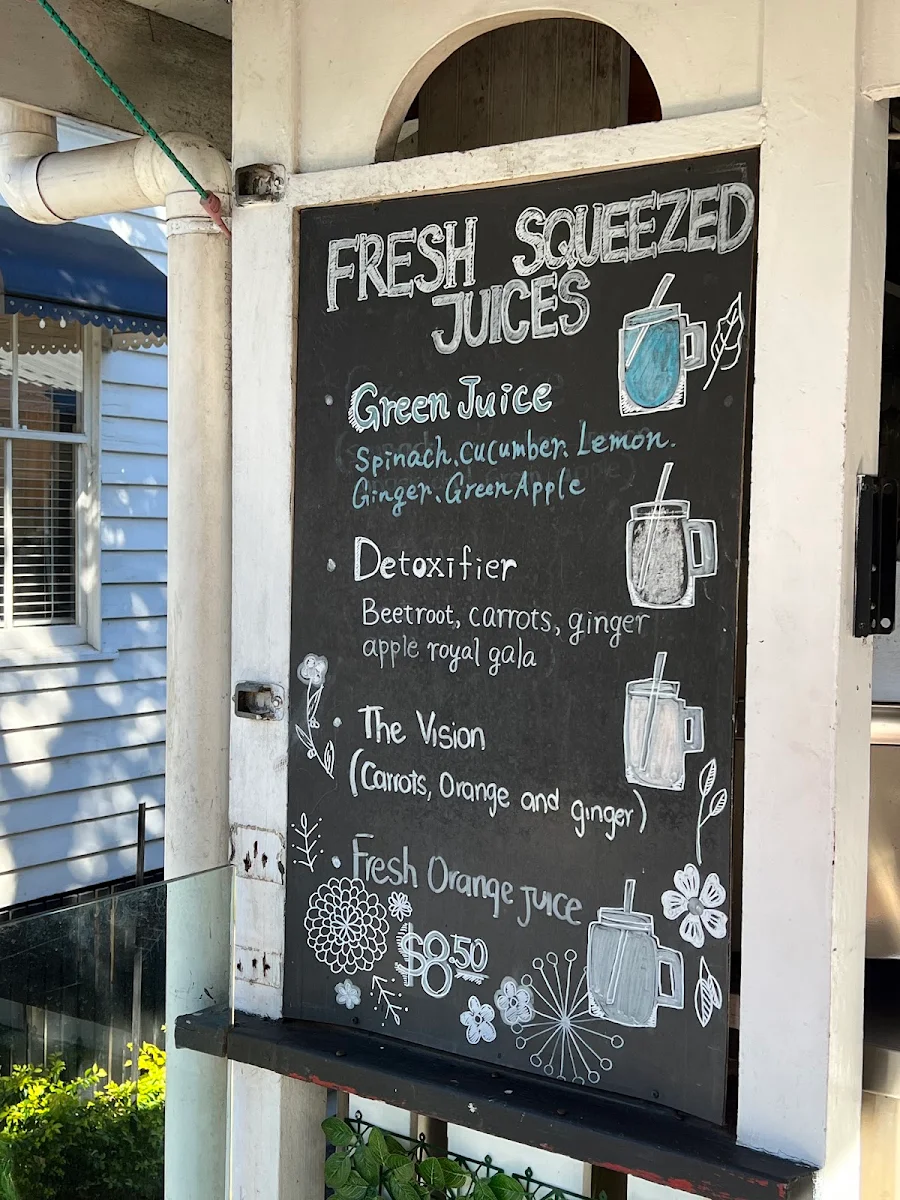 FRESH SQUEEZED
JUICES
Green Juice
Spinach. cucumber. Lemon.
Ginger. Green Apple
Detoxifier
Beetroot, carrots, ginger
apple royal gala
The Vision
(Carrots, Orange and ginger)
Fresh Orange juice
$8.50